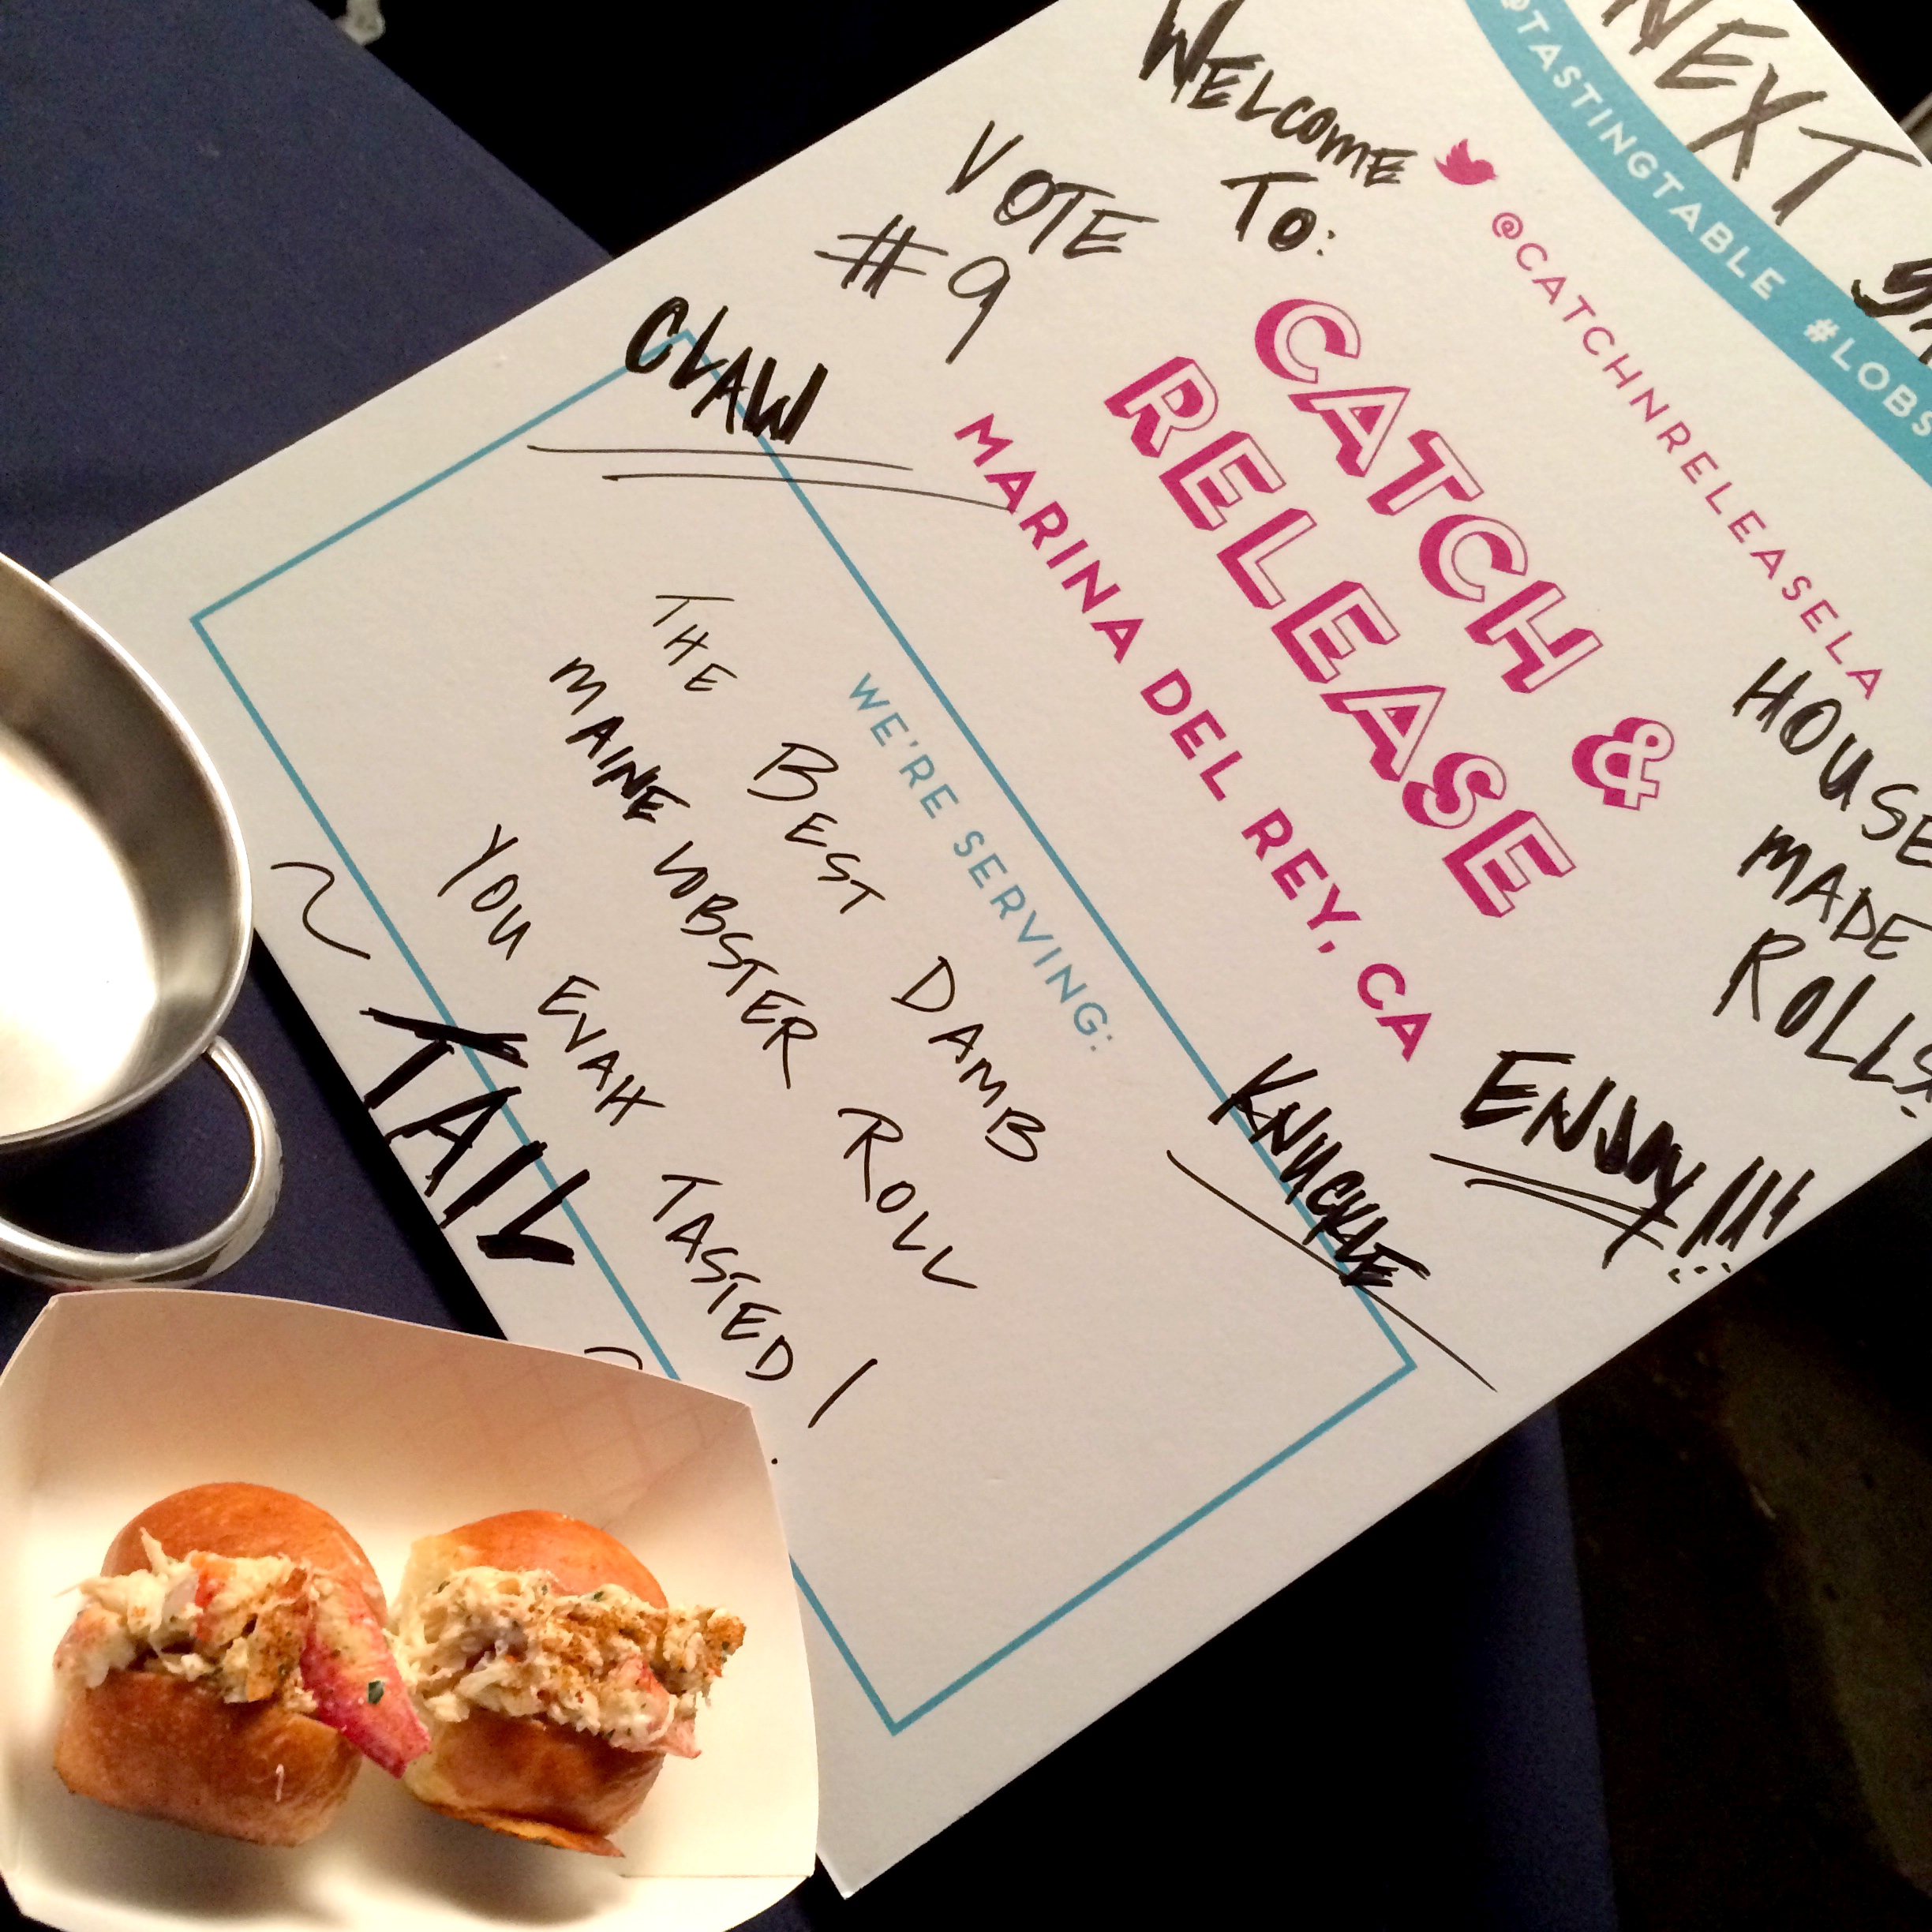 NEXT
@TASTINGTABLE #LOBS
WELCOME
TO:
@CATCHNRELEASELA
VOTE
#9
CATCH &
RELEASE
MARINA DEL REY, CA
HOUSE
MADE
ROLLS
ENJOY!!!
CLAW
KNUCKLE
WE'RE SERVING:
THE BEST DAMB
MAINE LOBSTER ROLL
YOU EVAH TASTED!
TAIL